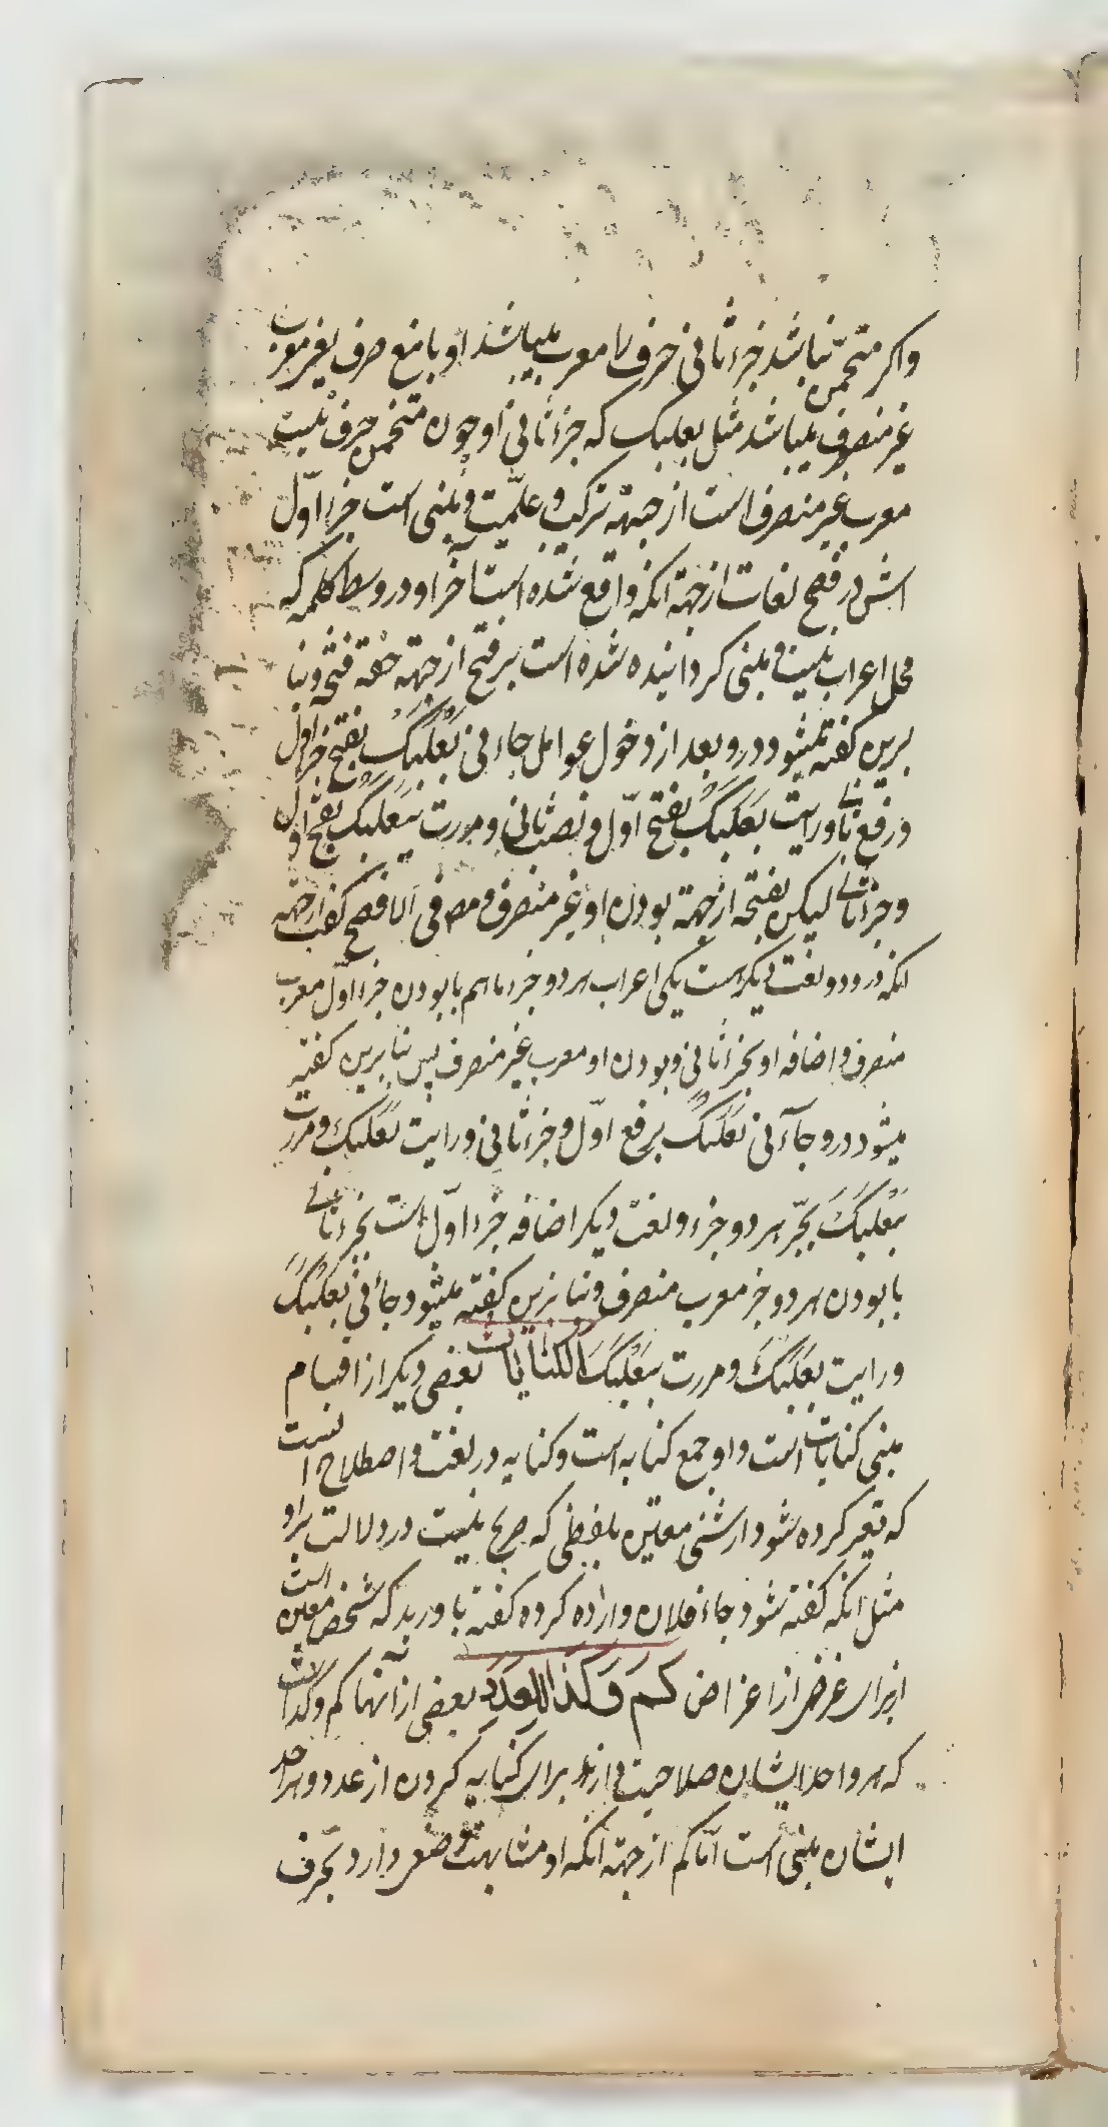 واکر متخمن نباشد جزء ثانی حرف را معرب میباشد او با منع صرف یعنی معرب
غیر منصرف میباشد مثل بعلبک که جزء ثانی او چون متخمن حرف نیست
معرب غیر منصرف است از جهة ترکیب و علمیت و مبنی است جزء اوّل
اش در افصح لغات از جهة انکه واقع شده است آخر او در وسط کلمه که
محل اعراب نیست و مبنی کردانیده شده است بر فتح از جهة خفة فتحه و بنا
برین کفته میشود درو بعد از دخول عوامل جاءنی بَعْلَبَکُ بفتح جزء اول
و رفع ثانی و رایت بَعْلَبَکَ بفتح اوّل و نصب ثانی و مررت ببَعْلَبَکَ بفتح اول
و جزء ثانی لیکن بفتحه از جهة بودن او غیر منصرف و مصـ فی الافصح کفت از جهة
انکه درو دو لغت دیکر است یکی اعراب هر دو جزء با هم با بودن جزء اوّل معرب
منصرف و اضافه او بجزء ثانی و بودن او معرب غیر منصرف پس بنا برین کفته
میشود درو جاآنی بَعْلُبَکُ برفع اوّل و جزء ثانی و رایت بَعْلَبَکَ و مررت
ببَعْلِبَکَ بجرّ هر دو جزء و لغت دیکر اضافه جزء اوّل است بجزء ثانی
با بودن هر دو جزء معرب منصرف و بنا برین کفته میشود جاءنی بَعْلُبَکٌ
و رایت بعلبکً و مررت ببعلبکٍ الکنایات بعضی دیکر از اقسام
مبنی کنایات است و او جمع کنایه است و کنایه در لغت و اصطلاح انست
که تعبیر کرده شود از شئی معیّن بلفظی که صریح نیست در دلالت براو
مثل انکه کفته شود جاء فلان و اراده کرده کفته باو زید که شخص معین است
از برای غرضی از اغراض کَمْ وَکَذَا لِلعَدَدِ بعضی از آنها کم و کذا است
که هر واحد ایشان صلاحیت دارند برای کنایه کردن از عدد و هر واحد
ایشان مبنی است امّا کم از جهة انکه او مشابهت وضعی دارد بحرف